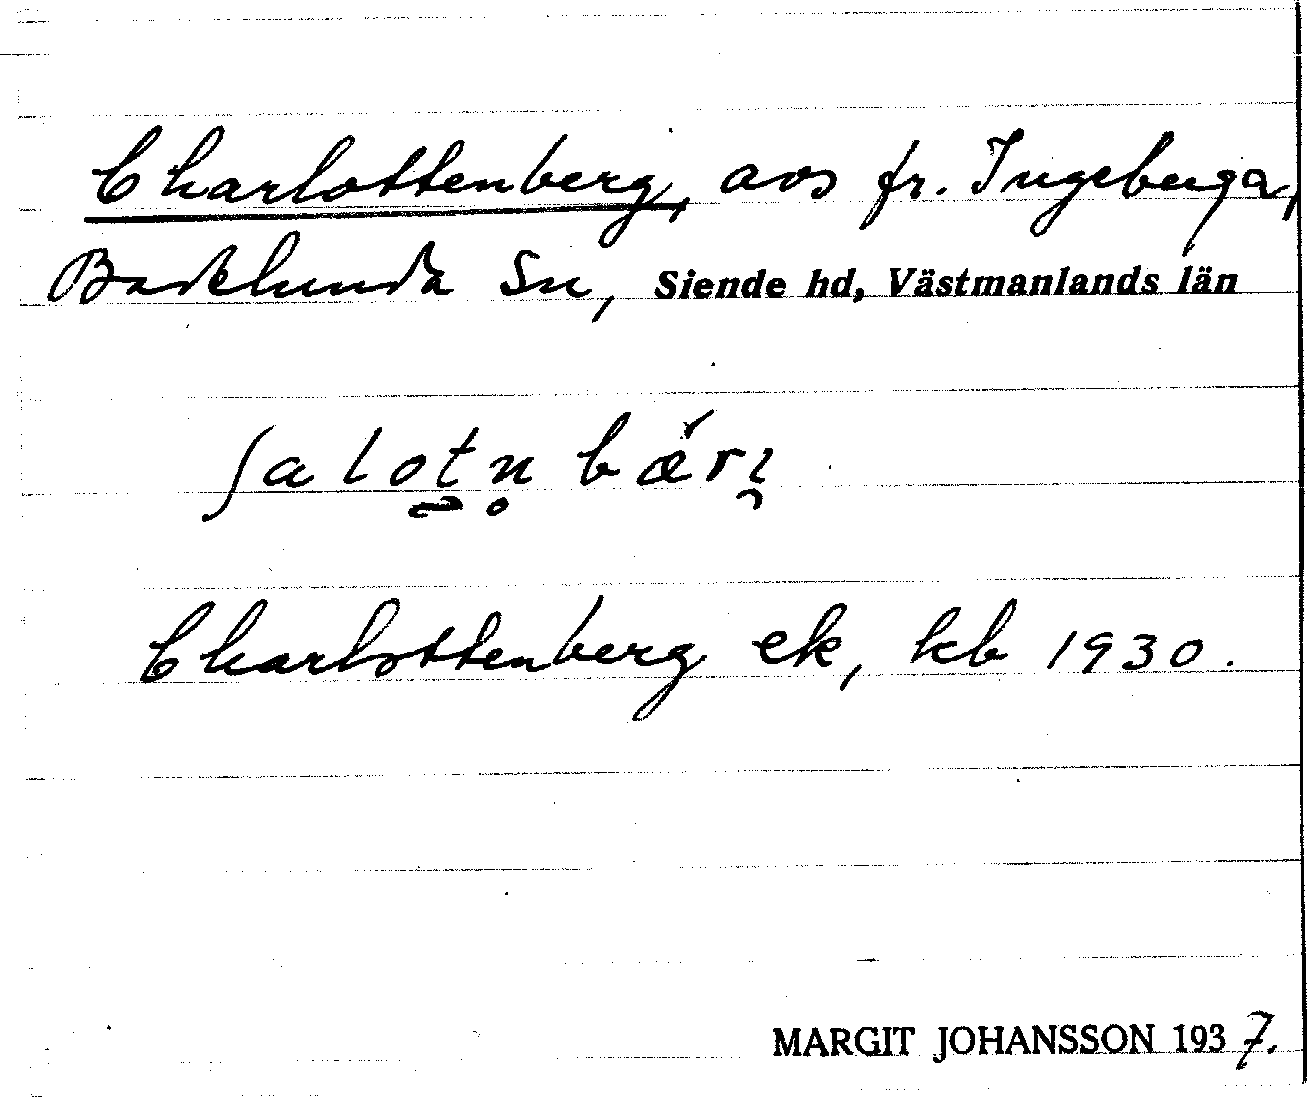 Charlottenberg, avs fr. Ingeberga,
Badelunda Sn, Siende hd, Västmanlands län
ʃalot̰n̥ bǽrı̯
Charlottenberg ek, kb 1930.
MARGIT JOHANSSON 1937.